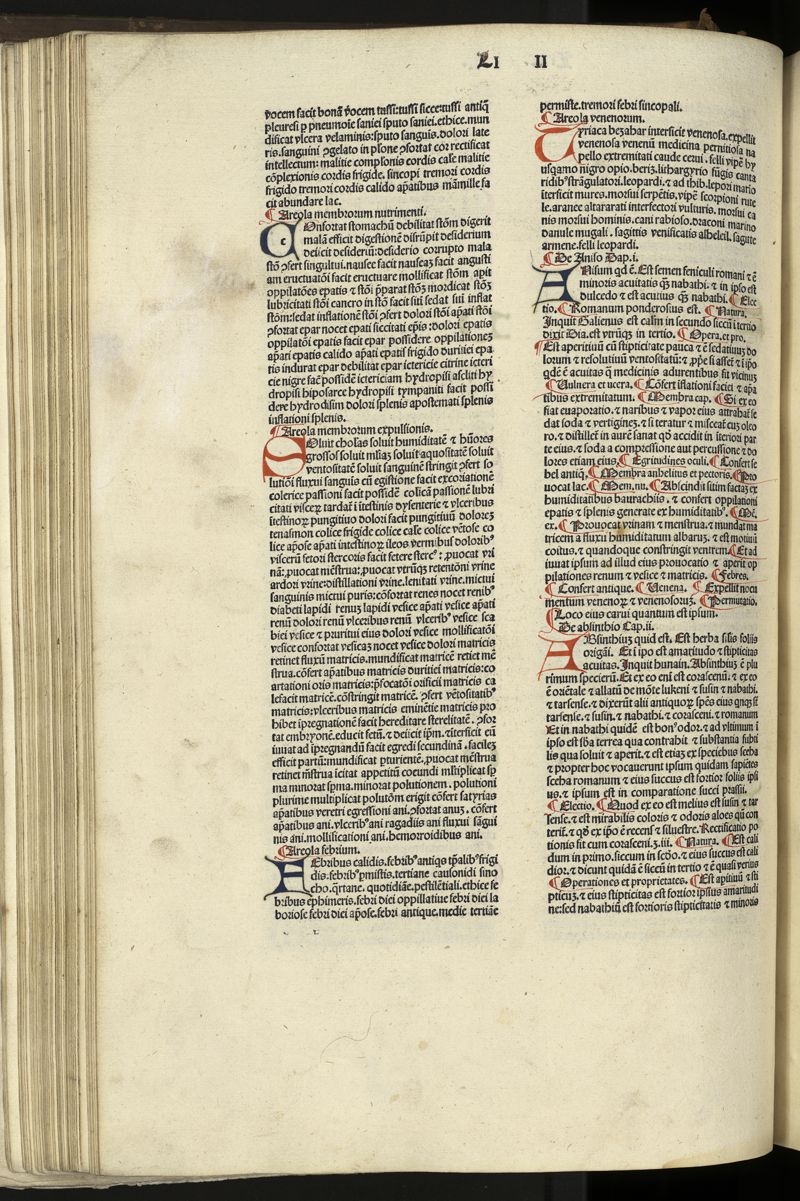 Li II
vocem facit bonā vocem tussi: tussi sicce: tussi antiq̄
pleuresi ꝑ pneumoīe saniei sputo saniei. ethice. mun
dificat vlcera velaminis: sputo sanguis. dolori late
ris. sanguini ꝯgelato in pſone ꝯfortat cor rectificat
intellectum: malitie complonis cordis caſe malitie
cōplexionis cordis frigide. sincopi tremori cordis
frigido tremori cordis calido aꝑatibus māmille fa
cit abundare lac.
¶ Areola membrorum nutrimenti.
COnfortat stomachū debilitat stōm digerit
malā efficit digestionē disrūpit desiderium
deiicit desideriū: desiderio corrupto mala
stō ꝯfert singultui. nausee facit nauseaʒ facit angusti
am eructuatōi facit eructuare mollificat stōm aꝑit
oppilatōes epatis ⁊ stōi p̄parat stōʒ mordicat stōʒ
lubricitati stōi cancro in stō facit siti sedat siti inflat
stōm: sedat inflationē stōi ꝯfert dolori stōi aꝑati stōi
ꝯfortat epar nocet epati siccitati ep̄is: dolori epatis
oppilatōi epatis facit epar possidere oppilationeʒ
aꝑati epatis calido aꝑati epatis frigido duritiei epa
tis indurat epar debilitat epar ictericie citrine icteri
cie nigre facē possidē ictericiam hydropisi ascliti hy
dropisi hiposarce hydropisi tympaniti facit possi
dere hydrodisim dolori splenis apostemati splenis
inflationi splenis.
¶ Areola membrorum expulsionis.
SOluit cholas soluit humiditatē ⁊ hūores
grossos soluit mlias soluit aquositatē soluit
ventositatē soluit sanguinē stringit ꝯfert so
lutiōi fluxui sanguis cū egistione facit excoriationē
colerice passioni facit possidē colicā passionē lubri
citati visceꝝ tardat ī ītestinis dysenterie ⁊ vlceribus
ītestinoꝝ pungitiuo dolori facit pungitiuū doloreʒ
tenasmon colice frigide colice caſe colice vētose co
lice apoſe aꝑati intestinoꝝ ileos vermibus dolorib⁹
visceꝝ fetori stercoris facit fetere sterc⁹: ꝓuocat vri
nā: ꝓuocat mēstrua: ꝓuocat vtrūqꝫ retentōni vrine
ardori vrine: distillationi vrine. lenitati vrine. mictui
sanguinis mictui puris: cōfortat renes nocet renib⁹
diabeti lapidi renuʒ lapidi vesice aꝑati vesice aꝑati
renū dolori renū vlceribus renū vlcerib⁹ vesice sca
biei vesice ⁊ pruritui eius dolori vesice mollificatōi
vesice confortat vesicaʒ nocet vesice dolori matricis
retinet fluxū matricis. mundificat matricē retiet mē
strua. cōfert aꝑatibus matricis duritiei matricis: co
artationi oris matricis: ꝑfocatōi orificii matricis ca
lefacit matricē. cōstringit matricē. ꝯfert vētositatib⁹
matricis: vlceribus matricis eminētie matricis pro
hibet īpregnationē facit hereditare sterelitatē. ꝯfor
tat embryonē. educit fetū. ⁊ deiicit ip̄m. īterficit eū
iuuat ad īpregnandū facit egredi secundinā. facileʒ
efficit partū: mundificat pturientē. ꝓuocat mēstrua
retinet mēstrua īcitat appetitū coeundi mltiplicat sp
ma minorat spma. minorat polutionem. polutioni
plurime multiplicat polutōm erigit cōfert satyrias
aꝑatibus veretri egressioni ani. ꝯfortat anuʒ. cōfert
aꝑatibus ani. vlcerib⁹ ani ragadiis ani fluxui sāgui
nis ani. mollificationi ani. hemoroidibus ani.
¶ Areola febrium.
FEbribus calidis. febrib⁹ antiqs tꝑalib⁹ frigi
dis. febrib⁹ pmistis. tertiane causonidi sino
cho. qrtane. quotidiāe. pestilētiali. ethice fe
bribus ephimeris. febri diei oppillatiue febri diei la
boriose febri diei apoſe. febri antique. medie tertiāe
permiste. tremori febri sincopali.
¶ Areola venenorum.
TYriaca beʒahar interficit venenosa. expellit
venenosa venenū medicina pernitiosa na
pello extremitati caude cerui. felli viꝑe hy
usqamo nigro opio. beriʒ. lithargyrio fūgis canta
ridib⁹ strāgulatori. leopardi. ⁊ ad thib. lepori mario
īterficit mures. morsui serpētis, viꝑe scorpioni rute
le. aranee altararati interfectori vulturis. morsui ca
nis morsui hominis. cani rabioso. draconi marino
danule mugali. sagittis venificatis alheleil. sagitte
armene. felli leopardi.
¶ De Aniso Cap. i.
ANisum qd ē. Est semen feniculi romani ⁊ ē
minoris acuitatis qʒ nabathi. ⁊ in ipso est
dulcedo ⁊ est acuitus qʒ nabathi. ¶ Elec
tio. ¶ Romanum ponderosius est. ¶ Natura.
Inquit Galienus est calm in secundo siccū ī tertio
dixit Dia. est vtrūqꝫ in tertio. ¶ Opera. et pro.
¶ Est aperitiuū cū stipticitate pauca ⁊ ē sedatiuuʒ do
lorum ⁊ resolutiuū ventositatū: ⁊ ꝓpe si assef ⁊ ī ipo
qdē ē acuitas q medicinis adurentibus fit vicinuʒ
¶ Vulnera et ulcera. ¶ Cōfert īflationi faciei ⁊ apa
tibus extremitatum. ¶ Membra cap. ¶ Si ex eo
fiat euaporatio. ⁊ naribus ⁊ vapor eius attrahať se
dat soda ⁊ vertigineʒ. ⁊ si teratur ⁊ misceať cuʒ oleo
ro. ⁊ distillet̄ in aurē sanat qd̄ accidit in īteriori par
te eius. ⁊ soda a compressione aut percussione ⁊ do
lores etiam eius. ¶ Egritudines oculi. ¶ Confert se
bel antiq. ¶ Membra anhelitus et pectoris. ¶ Pro
uocat lac. ¶ Mem. nu. ¶ Abscindit sitim factaʒ ex
humiditatibus baurachiis. ⁊ confert oppilationi
epatis ⁊ splenis generate ex humiditatib⁹. ¶ Mē.
ex. ¶ Prouocat vrinam ⁊ menstrua. ⁊ mundat ma
tricem a fluxu humiditatum albaruʒ. ⁊ est motiuū
coitus. ⁊ quandoque constringit ventrem. ¶ Et ad
iuuat ipsum ad illud eius prouocatio ⁊ aperit op
pilationes renum ⁊ vesice ⁊ matricis. ¶ Febres.
¶ Confert antique. ¶ Venena. ¶ Expellit nocu
mentum venenoꝝ ⁊ venenosoruʒ. ¶ Permutatio.
¶ Loco eius carui quantum est ipsum.
¶ De absinthio Cap. ii.
ABsinthiuʒ quid est. Est herba sifis foliis
origāi. Et ī ipo est amaritudo ⁊ stipticitas
⁊ acuitas. Inquit hunain. Absinthiuʒ ē plu
rimum specierū. Et ex eo eni est corascenū. ⁊ ex eo
ē oriētale ⁊ allatū de mōte lukeni ⁊ susin ⁊ nabathi.
⁊ tarsense. ⁊ dixerūt alii antiquoꝝ spēs eius qnqꝫ sf
tarsense. ⁊ susin. ⁊ nabathi. ⁊ corasceni. ⁊ romanum
Et in nabathi quidē est bon⁹ odor. ⁊ ad vltimum ī
ipso est sba terrea qua contrahit ⁊ substantia subti
lis qua soluit ⁊ aperit. ⁊ est etiaʒ ex speciebus sceha
⁊ propter hoc vocauerunt ipsum quidam sapiētes
sceha romanum ⁊ eius succus est fortior foliis ipsi
us. ⁊ ipsum est in comparatione succi prassii.
¶ Electio. ¶ Quod ex eo est melius est susin ⁊ tar
sense. ⁊ est mirabilis coloris ⁊ odoris aloes qū con
terit̄. ⁊ qd̄ ex ipō ē recens ⁊ siluestre. Rectificatio po
tionis fit cum corasceni. ʒ. iii. ¶ Natura. ¶ Est cali
dum in primo. siccum in scdo. ⁊ eius succus est cali
dior. ⁊ dicunt quidā ē siccū in tertio ⁊ ē quasi verius
¶ Operationes et proprietates. ¶ Est apitiuū ⁊ sti
pticuʒ. ⁊ eius stipticitas est fortior ipsius amaritudi
ne: sed nabathiū est fortioris stipticitatis ⁊ minoris